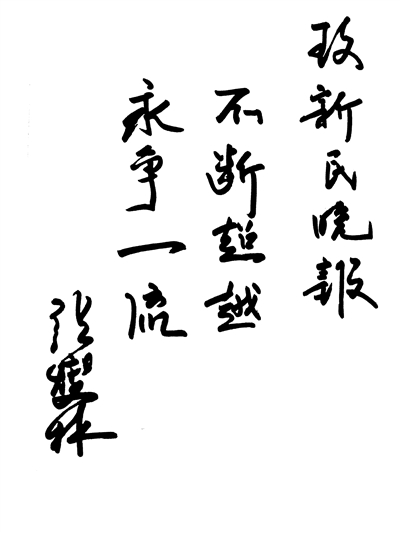 致新民晚報
不断超越
永争一流
张林